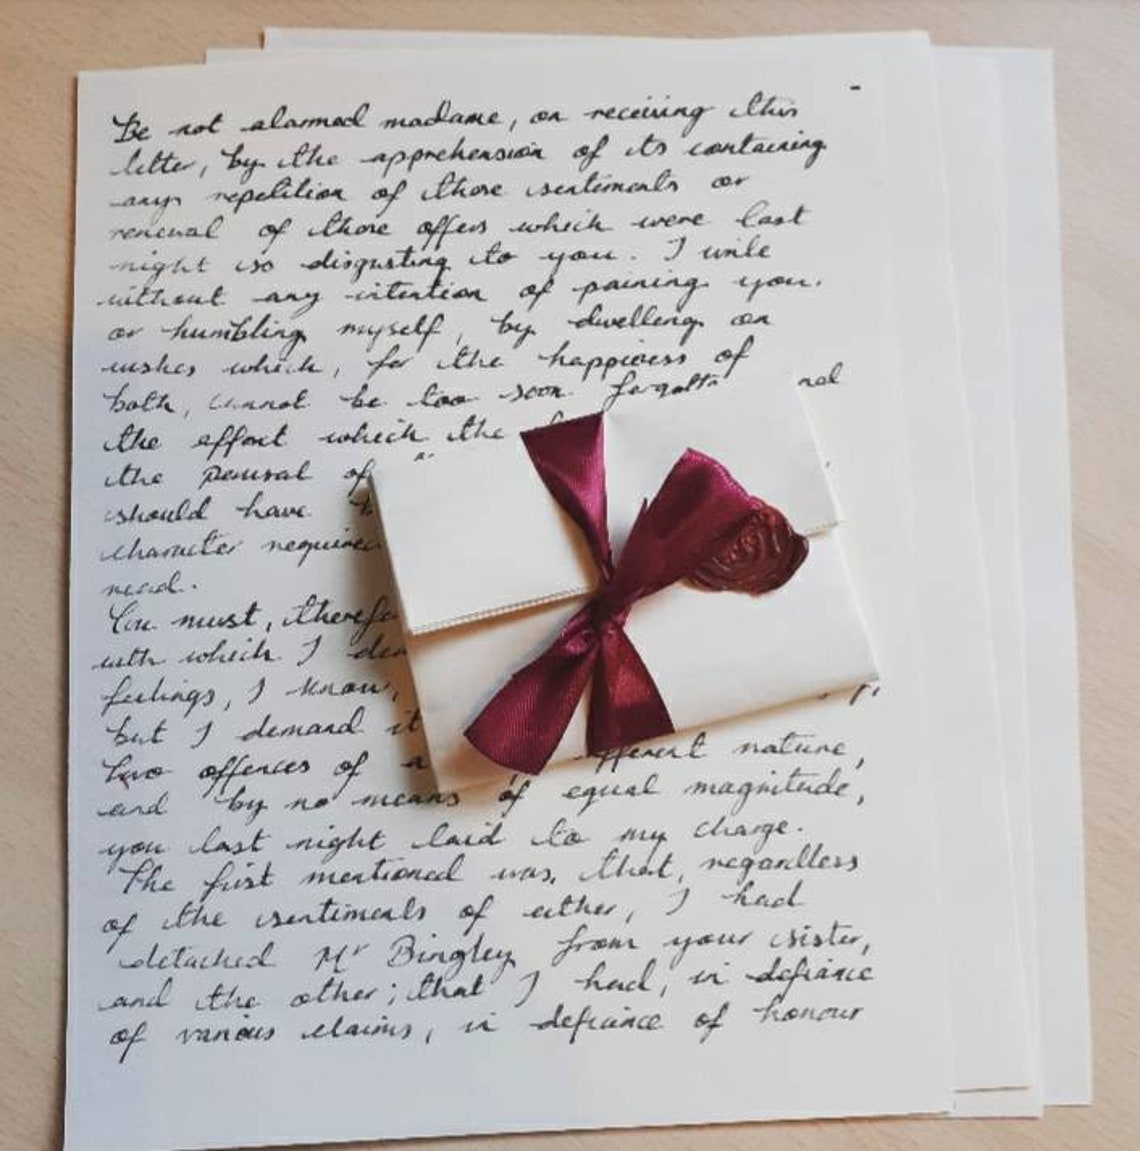 Be not alarmed madame, on receiving this
letter, by the apprehension of its containing
any repetition of those sentiments or
renewal of those offers which were last
night so disgusting to you. I write
without any intention of paining you,
or humbling myself, by dwelling on
wishes which, for the happiness of
both, cannot be too soon
the effort which the
the perusal of
should have
character
read.
You must,
with which I
feelings, I know,
but I demand it
two offences of a nature,
and by no means of equal magnitude,
you last night laid to my charge.
The first mentioned was, that, regardless
of the sentiments of either, I had
detached Mr Bingley from your sister,
and the other; that I had, in defiance
of various claims, in defiance of honour